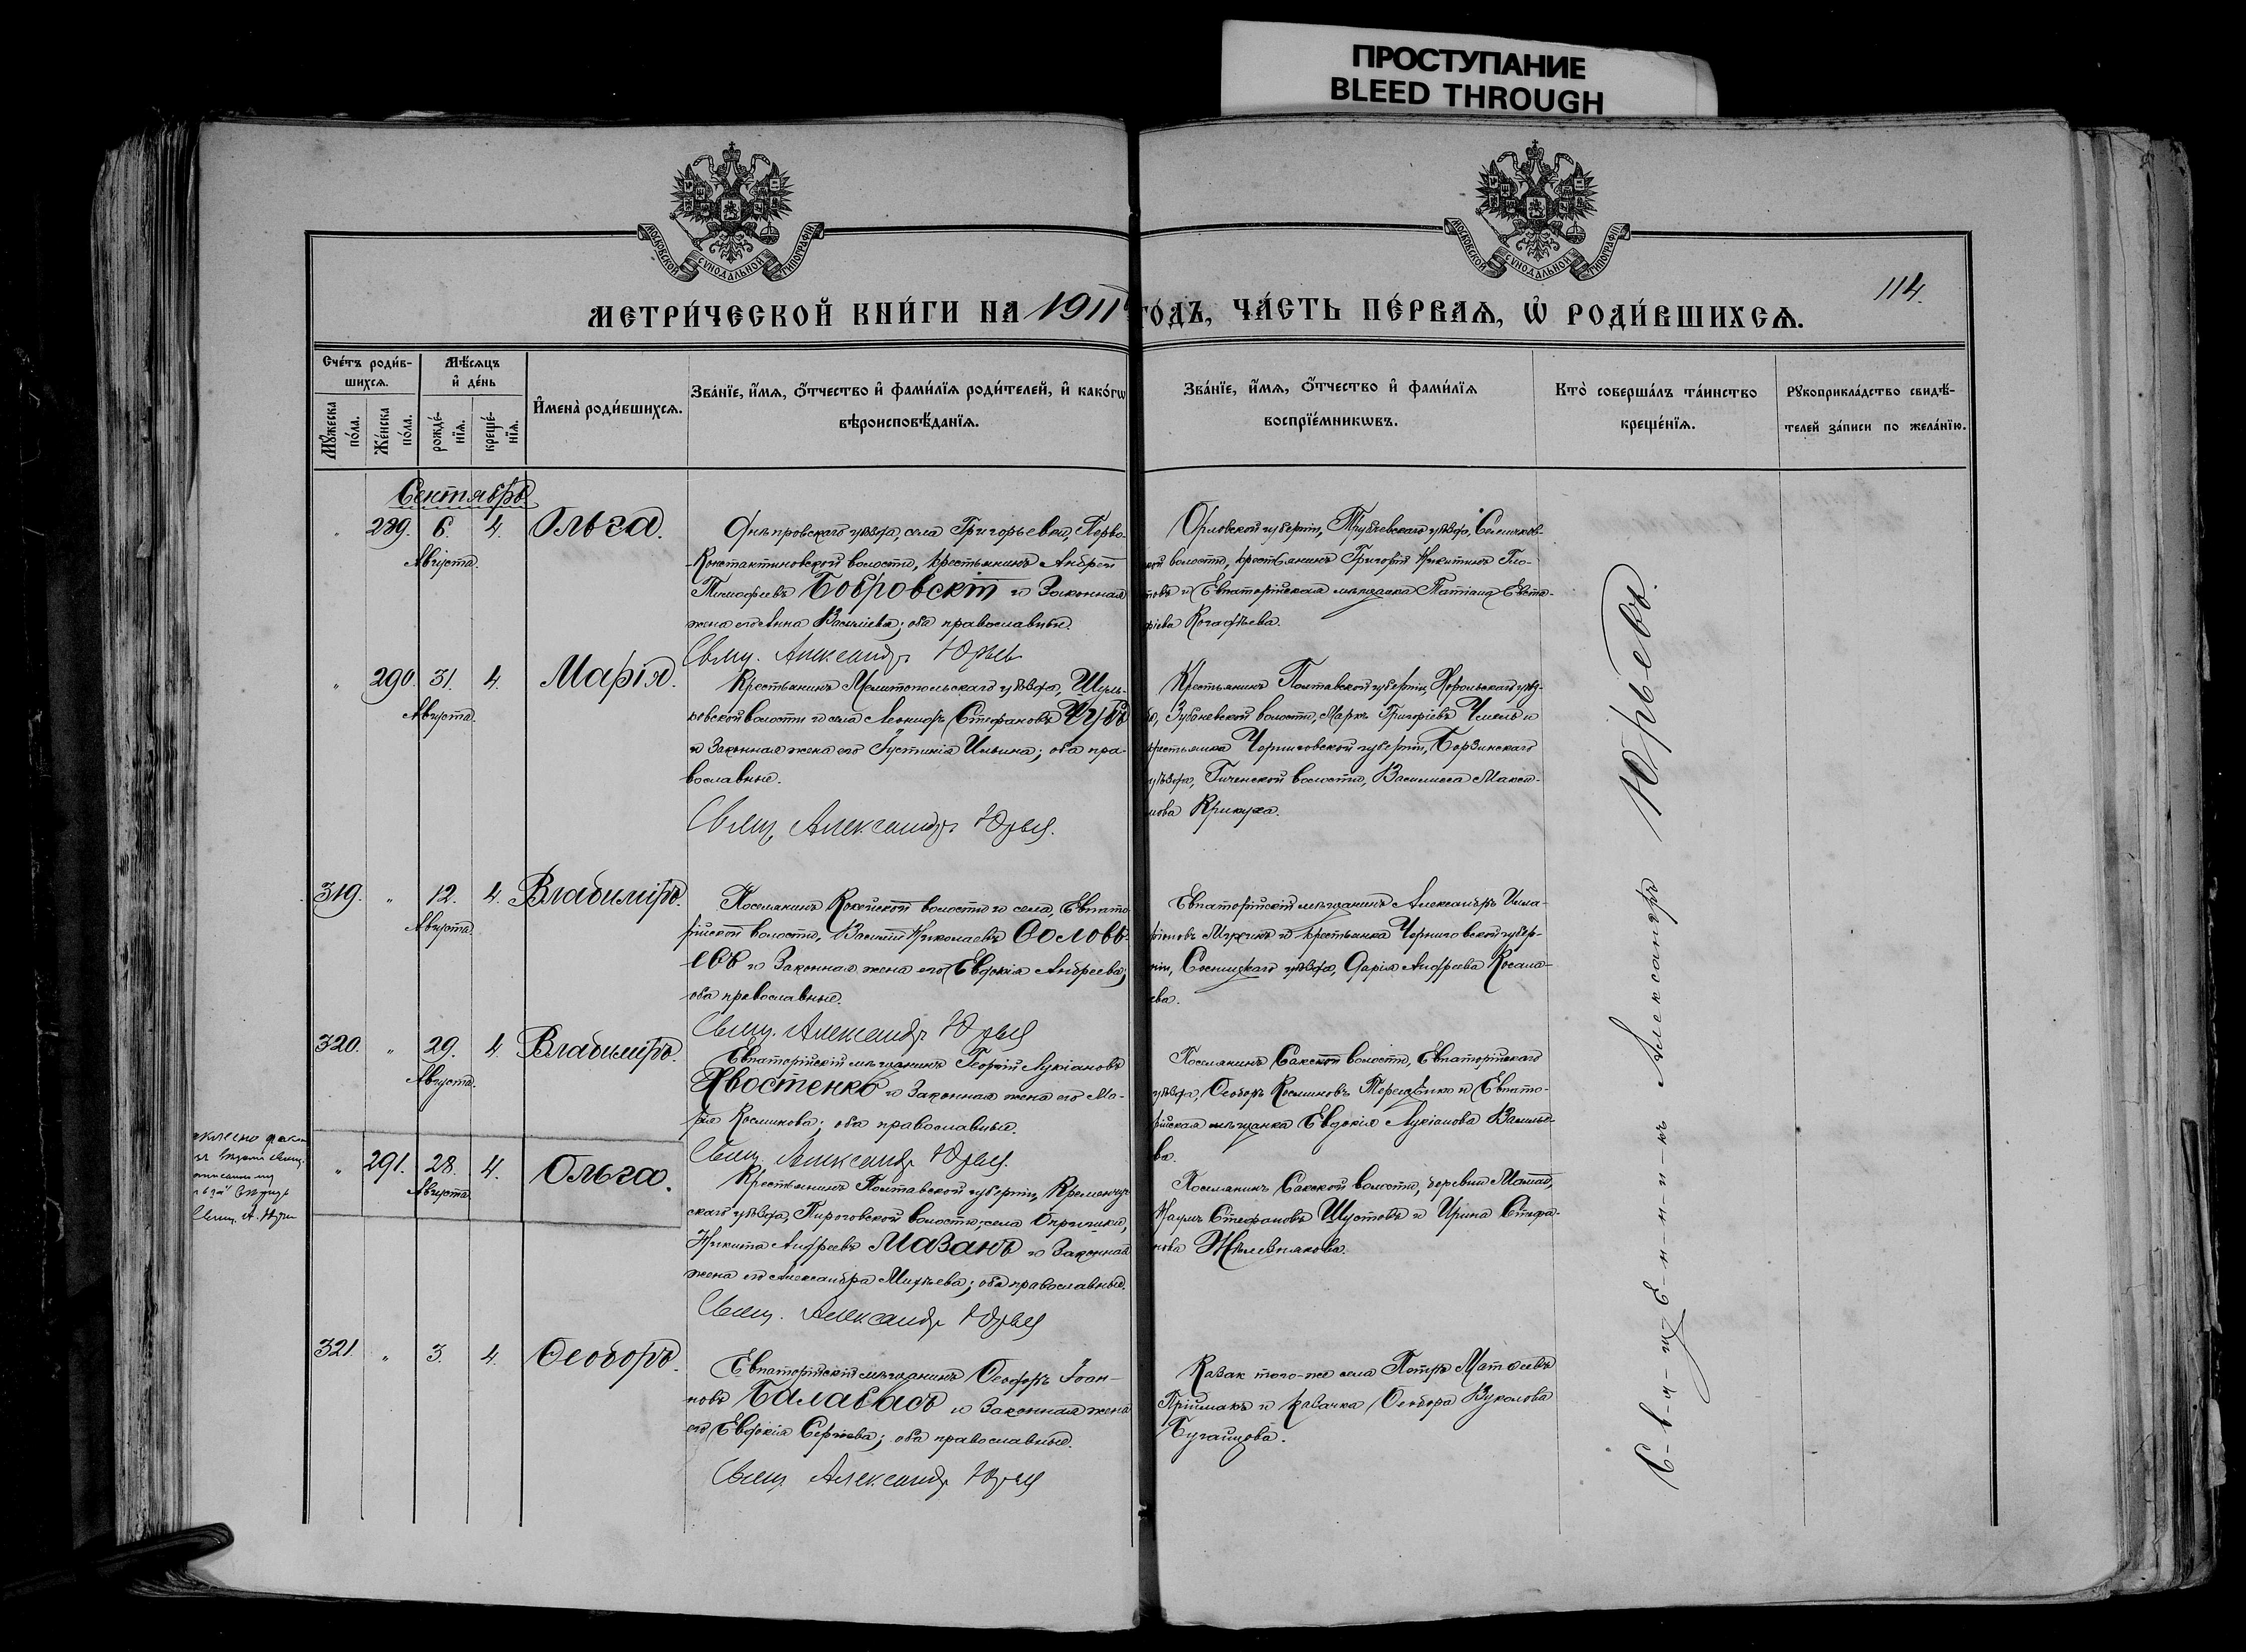 ПРОСТУПАНИЕ
BLEED THROUGH
МОСКОВСКОЙ СѴНОДАЛЬНОЙ ТИПОГРАФІИ
МОСКОВСКОЙ СѴНОДАЛЬНОЙ ТИПОГРАФІИ
114.
МЕТРИ́ЧЕСКОЙ КНИ́ГИ НА 1911 ГО́ДЪ, ЧА́СТЬ ПЕ́РВАѦ, Ѡ҆ РОДИ́ВШИХСѦ.
Сче́тъ роди́в-
шихсѧ.
Мꙋ́жеска по́ла.
Же́нска по́ла.
Мѣ́сѧцъ и҆ де́нь
рожде́-нїѧ.
креще́-нїѧ.
И҆мена̀ роди́вшихсѧ.
Зва́нїе, и҆́мѧ, ѻ҆́тчество и҆ фами́лїѧ роди́телей, и҆ како́гѡ
вѣроисповѣ́данїѧ.
Зва́нїе, и҆́мѧ, ѻ҆́тчество и҆ фами́лїѧ
воспрїе́мникѡвъ.
Кто̀ соверша́лъ та́инство
креще́нїѧ.
Рꙋкоприкла́дство свидѣ́-
телей за́писи по жела́нїю.
Сентябрь
289. 6. 4. Ольга.
Августа.
Днѣпровскаго уѣзда, села Григорьевки, Перво-
Константиновской волости, крестьянинъ Андрей
Тимофеевъ Бобровскій и законная
жена его Анна Васильева; оба православные.
Свящ. Александръ Юрьевъ
Орловской губерніи, Трубчевскаго уѣзда,
волости, крестьянинъ Григорій Никитинъ
и Евпаторійская мѣщанка Татіана
290. 31. 4. Марія.
Августа.
Крестьянинъ Мелитопольскаго уѣзда,
волости и села Стефановъ Чубъ
и законная жена его Іустинія Ильина; оба пра-
вославные.
Свящ. Александръ Юрьевъ.
Крестьянинъ Полтавской губерніи, Хорольскаго
волости, Маркъ Григоріевъ и
крестьянка Черниговской губерніи, Борзинскаго
уѣзда, волости, Василиса Макси-
мова
319. 12. 4. Владиміръ.
Августа
Поселянинъ волости и села, Евпато-
рійской волости, Василій Николаевъ Соловь-
евъ и законная жена его Евдокія Андреева;
оба православные.
Свящ. Александръ Юрьевъ
Евпаторійскій мѣщанинъ Александръ Илла-
ріоновъ и крестьянка Черниговской губер-
ніи, Сосницкаго уѣзда, Дарія Андреева
320. 29. 4. Владиміръ.
Августа.
Евпаторійскій мѣщанинъ Георгій Лукіановъ
Хвостенко и законная жена его Ма-
рія Косминова; оба православные.
Свящ. Александръ Юрьевъ.
Поселянинъ Сакской волости, Евпаторійскаго
уѣзда, Ѳеодоръ Косминовъ Терещенко и Евпато-
рійская мѣщанка Евдокія Лукіанова Василье-
ва.
291. 28. 4. Ольга.
Августа
Крестьянинъ Полтавской губерніи, Кременчуг-
скаго уѣзда, Пироговской волости, села
Никита Андреевъ Мазанъ и законная
жена его Александра Михѣева; оба православные.
Свящ. Александръ Юрьевъ
Поселянинъ Сакской волости, деревни
Наумъ Стефановъ Шустовъ и Ирина Стефа-
нова Желѣзнякова.
321. 3. 4. Ѳеодоръ.
Евпаторійскій мѣщанинъ Ѳеодоръ Іоан-
новъ Балабасъ и законная жена
его Евдокія Сергіева; оба православные.
Свящ. Александръ Юрьевъ
Казак того-же села Петръ Матѳеевъ
Пріймакъ и казачка Ѳеодора Вуколова
С-в-я-щ-е-н-н-и-къ Александръ Юрьевъ.